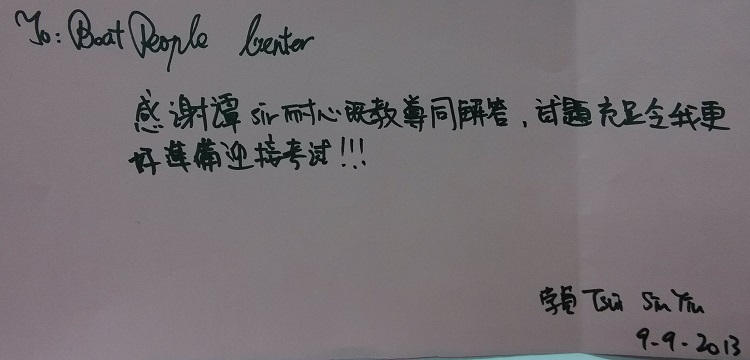 To: Boat People Center
感谢譚 sir 耐心既教導同解答，试題充足令我更
好準備迎接考试!!!
學員 Tsui Sin Yin
9-9-2013